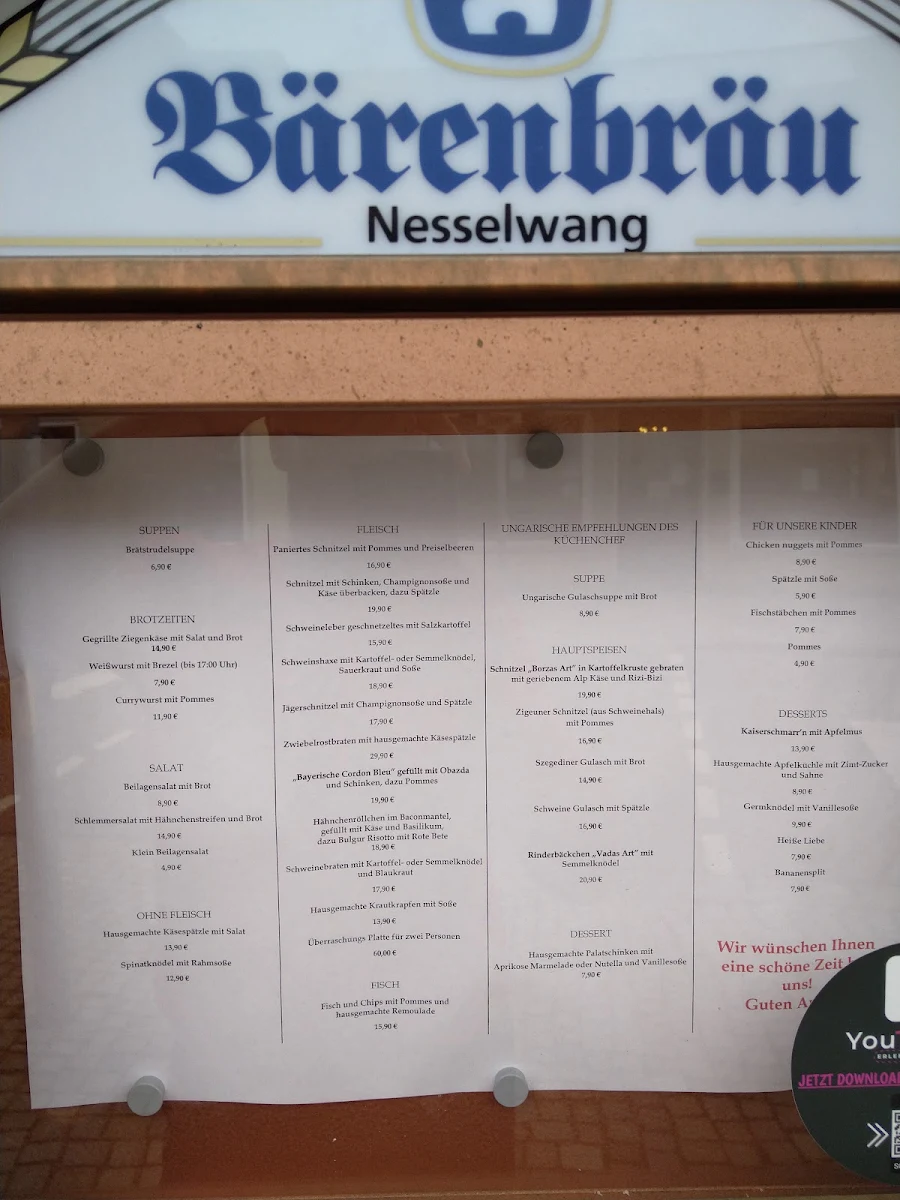 Bärenbräu
Nesselwang
SUPPEN
Brätstrudelsuppe
6,90 €
BROTZEITEN
Gegrillte Ziegenkäse mit Salat und Brot
14,90 €
Weißwurst mit Brezel (bis 17:00 Uhr)
7,90 €
Currywurst mit Pommes
11,90 €
SALAT
Beilagensalat mit Brot
8,90 €
Schlemmersalat mit Hähnchenstreifen und Brot
14,90 €
Klein Beilagensalat
4,90 €
OHNE FLEISCH
Hausgemachte Käsespätzle mit Salat
13,90 €
Spinatknödel mit Rahmsoße
12,90 €
FLEISCH
Paniertes Schnitzel mit Pommes und Preiselbeeren
16,90 €
Schnitzel mit Schinken, Champignonsoße und
Käse überbacken, dazu Spätzle
19,90 €
Schweineleber geschnetzeltes mit Salzkartoffel
15,90 €
Schweinshaxe mit Kartoffel- oder Semmelknödel,
Sauerkraut und Soße
18,90 €
Jägerschnitzel mit Champignonsoße und Spätzle
17,90 €
Zwiebelrostbraten mit hausgemachte Käsespätzle
29,90 €
„Bayerische Cordon Bleu" gefüllt mit Obazda
und Schinken, dazu Pommes
19,90 €
Hähnchenröllchen im Baconmantel,
gefüllt mit Käse und Basilikum,
dazu Bulgur Risotto mit Rote Bete
18,90 €
Schweinebraten mit Kartoffel- oder Semmelknödel
und Blaukraut
17,90 €
Hausgemachte Krautkrapfen mit Soße
13,90 €
Überraschungs Platte für zwei Personen
60,00 €
FISCH
Fisch und Chips mit Pommes und
hausgemachte Remoulade
15,90 €
UNGARISCHE EMPFEHLUNGEN DES
KÜCHENCHEF
SUPPE
Ungarische Gulaschsuppe mit Brot
8,90 €
HAUPTSPEISEN
Schnitzel „Borzas Art" in Kartoffelkruste gebraten
mit geriebenem Alp Käse und Rizi-Bizi
19,90 €
Zigeuner Schnitzel (aus Schweinehals)
mit Pommes
16,90 €
Szegediner Gulasch mit Brot
14,90 €
Schweine Gulasch mit Spätzle
16,90 €
Rinderbäckchen „Vadas Art" mit
Semmelknödel
20,90 €
DESSERT
Hausgemachte Palatschinken mit
Aprikose Marmelade oder Nutella und Vanillesoße
7,90 €
FÜR UNSERE KINDER
Chicken nuggets mit Pommes
8,90 €
Spätzle mit Soße
5,90 €
Fischstäbchen mit Pommes
7,90 €
Pommes
4,90 €
DESSERTS
Kaiserschmarr'n mit Apfelmus
13,90 €
Hausgemachte Apfelküchle mit Zimt-Zucker
und Sahne
8,90 €
Germknödel mit Vanillesoße
9,90 €
Heiße Liebe
7,90 €
Bananensplit
7,90 €
Wir wünschen Ihnen
eine schöne Zeit
uns!
Guten
You
JETZT